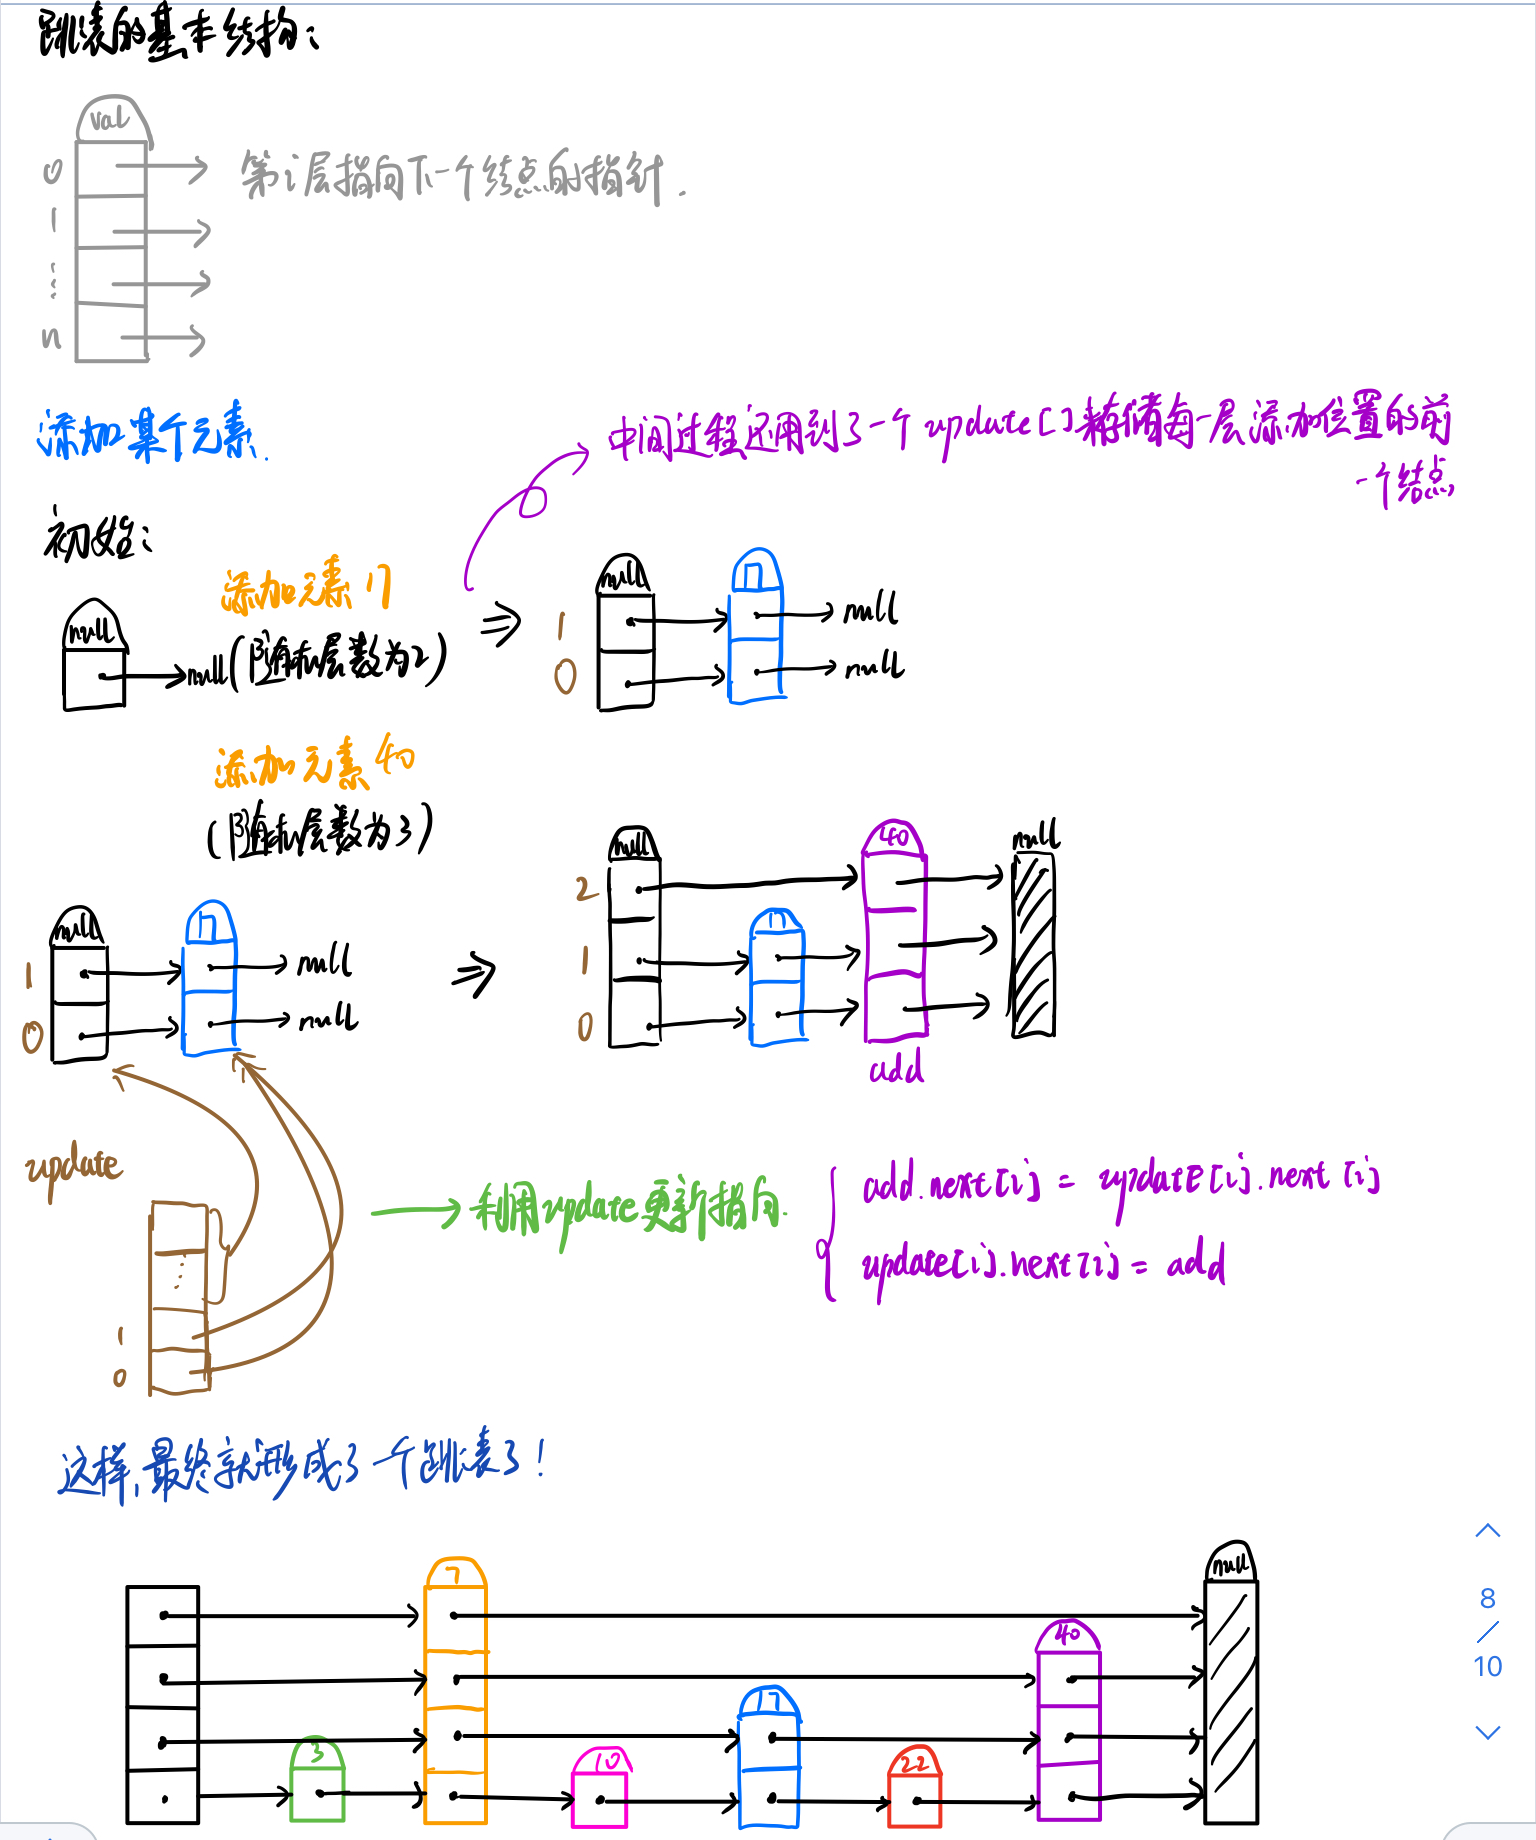 跳表的基本结构：
val
0
第i层指向下一个结点的指针.
1
⋮
n
添加某个元素.
中间过程还用到了一个update[]来存储每一层添加位置的前
一个结点
初始：
添加元素17
null
null
(随机层数为2)
null
17
1
null
0
null
添加元素40
(随机层数为3)
null
40
null
2
null
17
17
1
null
1
0
null
0
add
update
利用update更新指向.
add.next[i] = update[i].next[i]
update[i].next[i] = add
1
0
这样,最终就形成了一个跳表了！
null
7
40
17
3
10
22
8
/
10